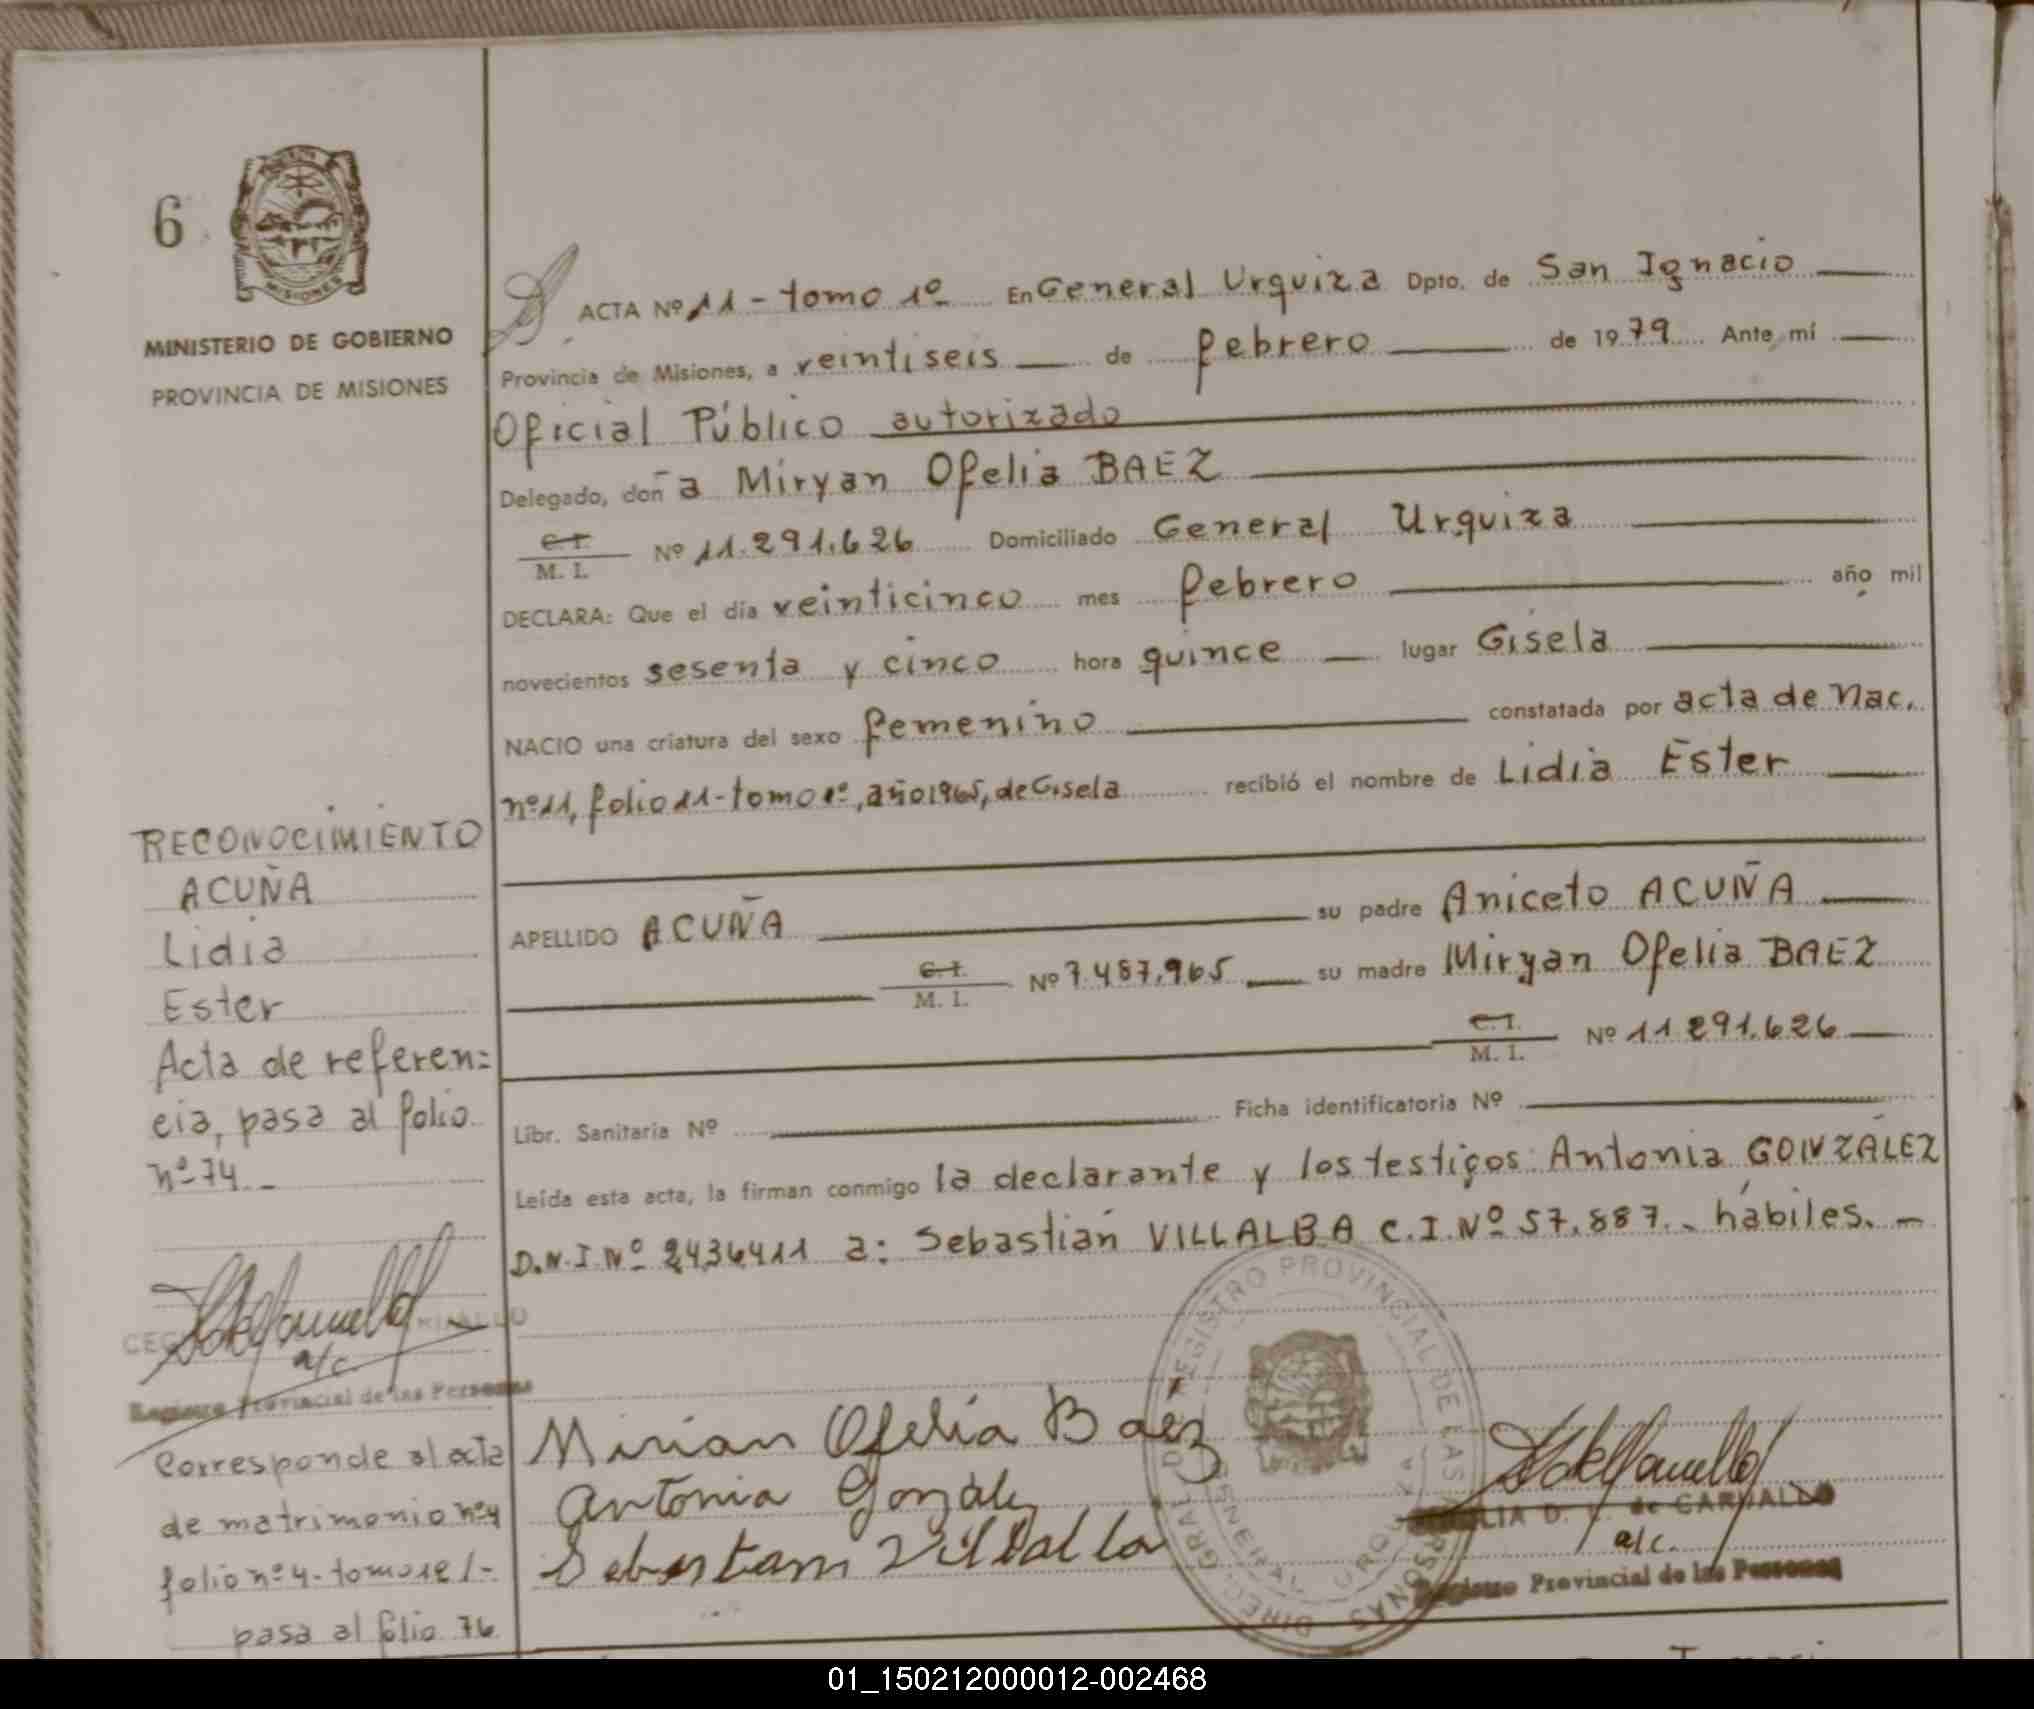 6
MISIONES
MINISTERIO DE GOBIERNO
PROVINCIA DE MISIONES
ACTA Nº 11 - tomo 1º En General Urquiza Dpto. de San Ignacio
Provincia de Misiones, a veintiseis de febrero de 1979 Ante mí
Oficial Público autorizado
Delegado, doña Miryan Ofelia BAEZ
C.I. M. I. Nº 11.291.626 Domiciliado General Urquiza
DECLARA: Que el día veinticinco mes febrero año mil
novecientos sesenta y cinco hora quince lugar Gisela
NACIO una criatura del sexo femenino constatada por acta de Nac.
nº 11, folio 11-tomo 1º, año 1965, de Gisela recibió el nombre de Lidia Ester
APELLIDO ACUÑA su padre Aniceto ACUÑA
C.I. M. I. Nº 7.487.965 su madre Miryan Ofelia BAEZ
C.I. M. I. Nº 11 291.626
Libr. Sanitaria Nº Ficha identificatoria Nº
Leída esta acta, la firman conmigo la declarante y los testigos: Antonia GONZÁLEZ
D.N.I. Nº 2436411 a: Sebastián VILLALBA C.I. Nº 57.887. hábiles.
RECONOCIMIENTO
ACUÑA
Lidia
Ester
Acta de referen=
cia, pasa al folio
nº 74
a/c.
Registro Provincial de las Personas
Corresponde al acta
de matrimonio nº 4
folio nº 4 - tomo 1º
pasa al folio 76
Mirian Ofelia Baez
Antonia Gonzalez
Sebastian Villalba
DIREC. GRAL. DEL REGISTRO PROVINCIAL DE LAS PERSONAS
GENERAL URQUIZA
de CARVALLO
a/c.
Registro Provincial de las Personas
01_150212000012-002468